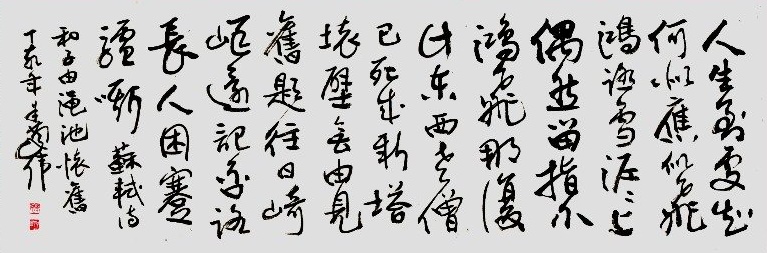 人生到處知
何似應似飛
鴻踏雪泥〻上
偶然留指爪
鴻飛那復
計東西老僧
已死成新塔
壞壁無由見
舊題往日崎
岖還記否路
長人困蹇
驢嘶 蘇軾詩
和子由澠池懷舊
丁亥年